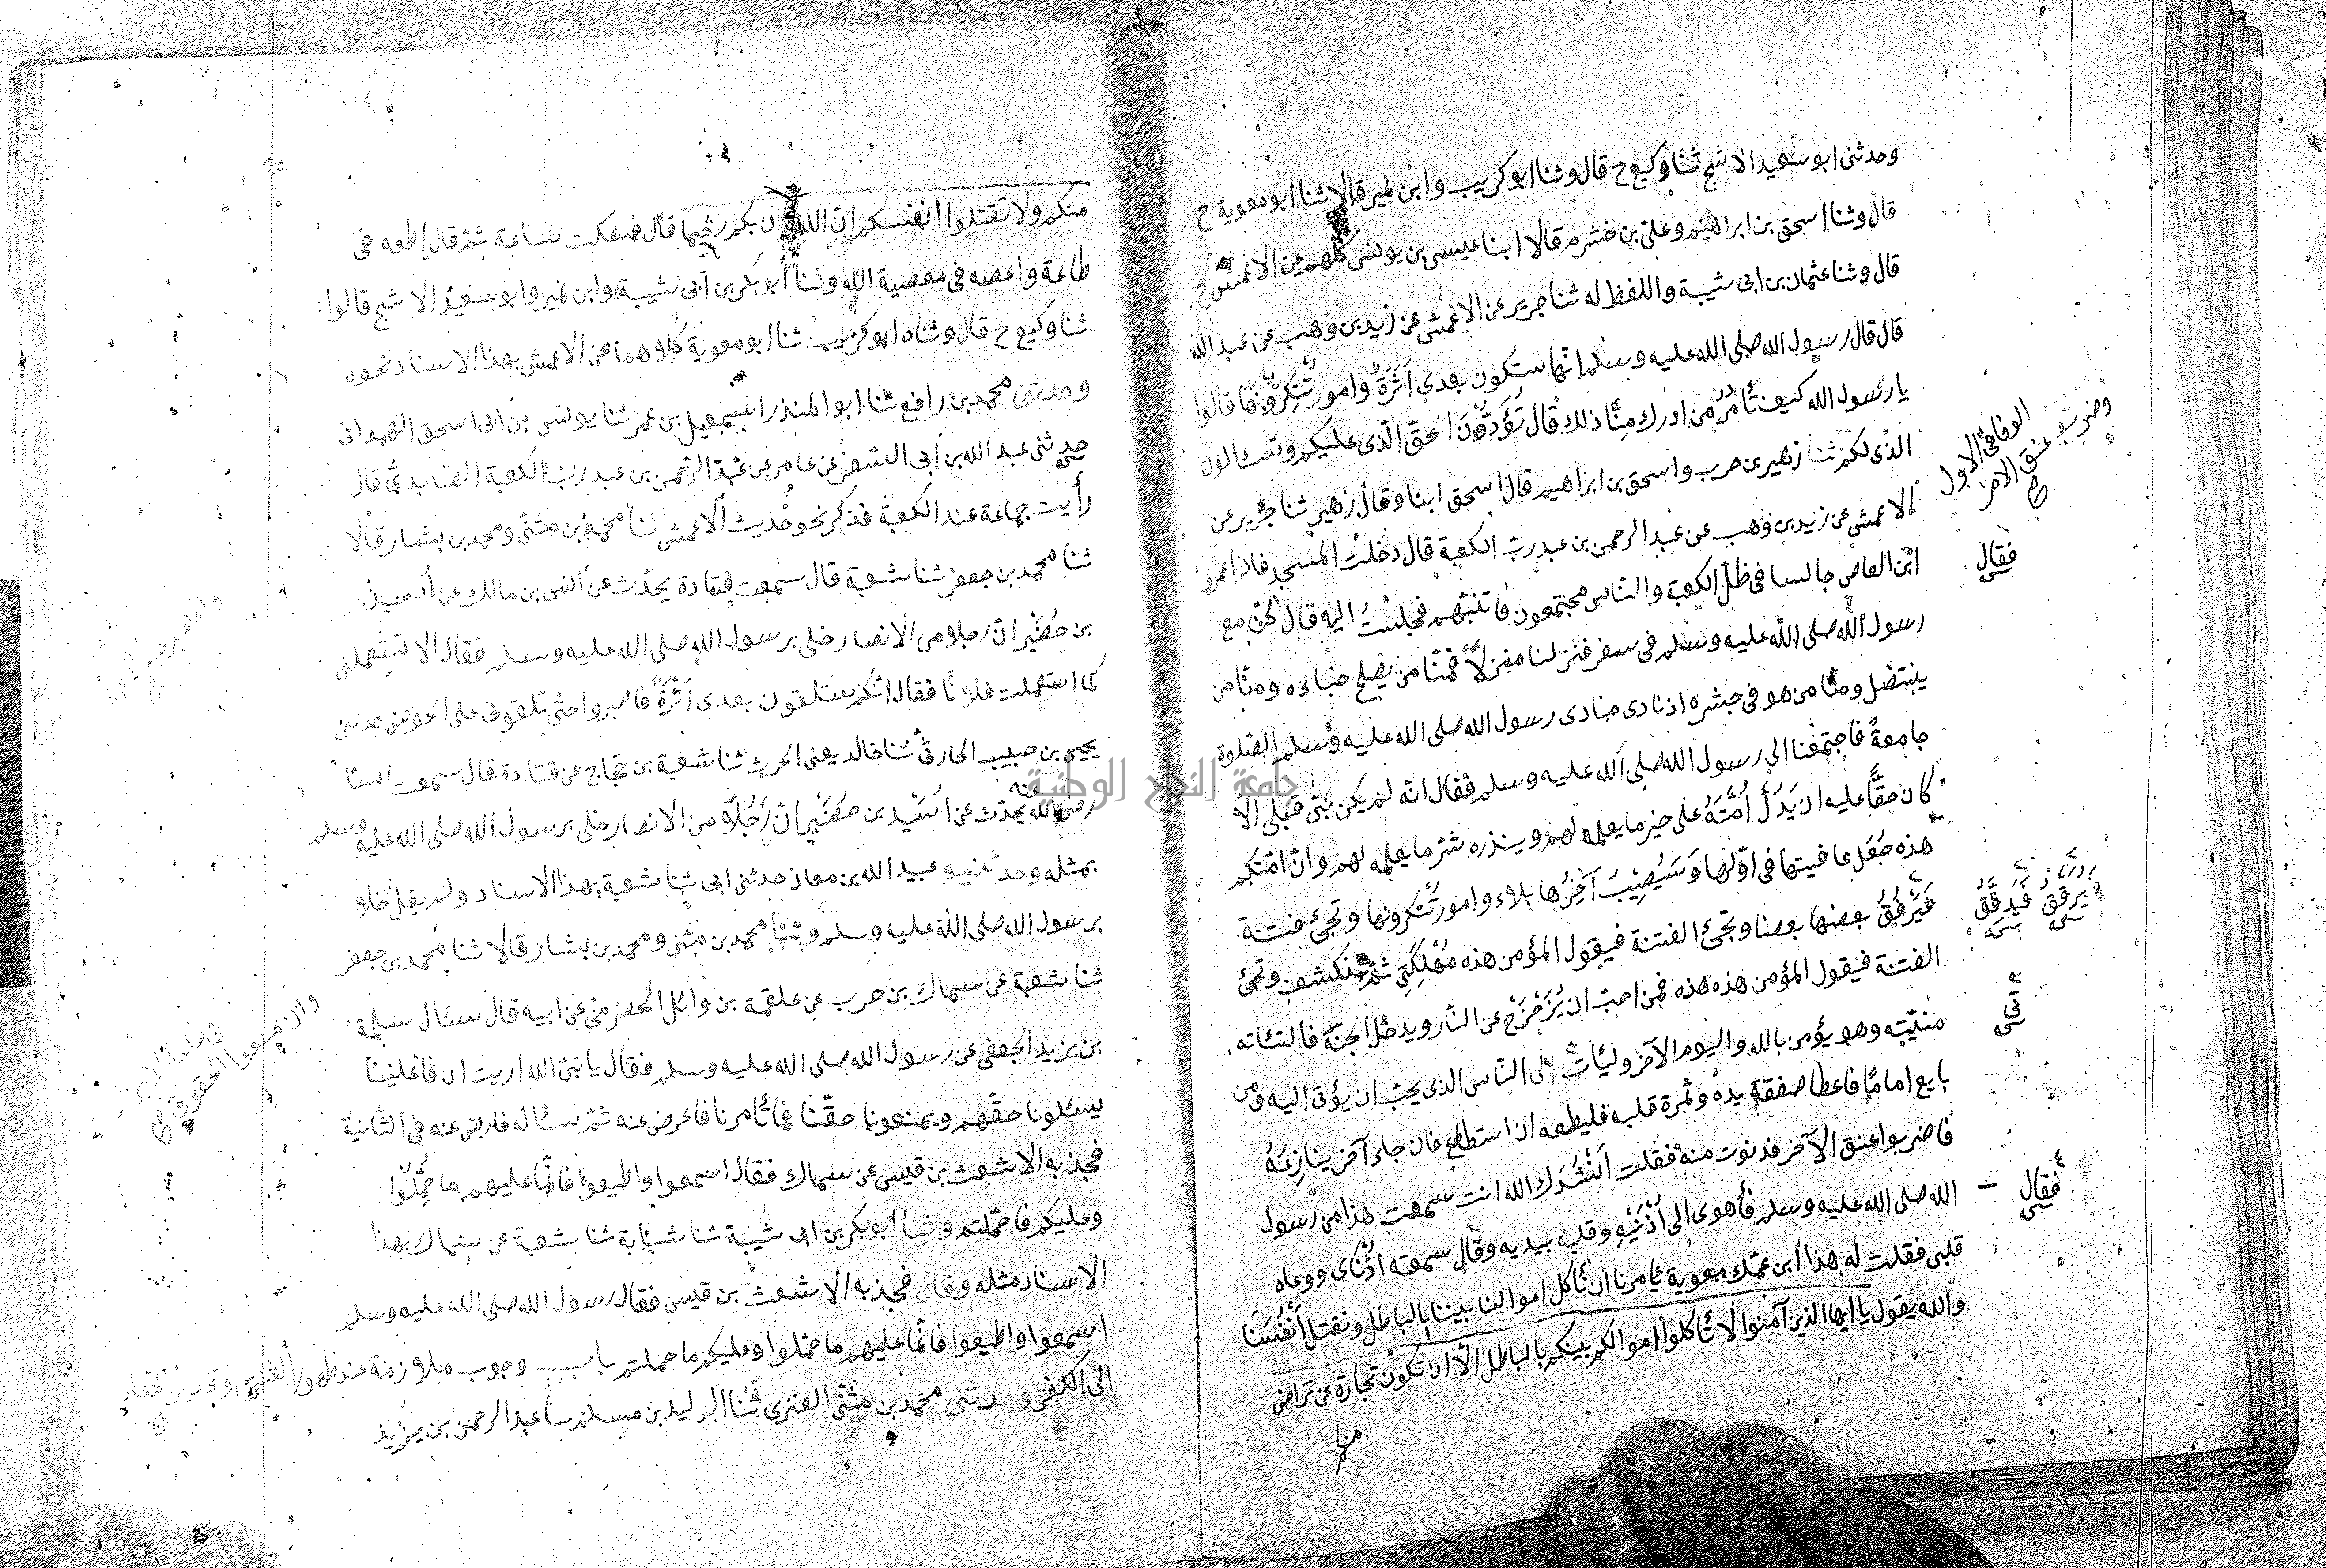 وحدثنى ابو سعيد الاشج ثنا وكيع ح قال وثنا ابو كريب وابن نمير قالا ثنا ابو معوية ح
قال وثنا اسحق بن ابراهيم وعلى بن خشرم قالا ابنا عيسى بن يونس كلهم عن الاعمش ح
قال وثنا عثمان بن ابى شيبة واللفظ له ثنا جرير عن الاعمش عن زيد بن وهب عن عبد الله
قال قال رسول الله صلى الله عليه وسلم انها ستكون بعدى اَثَرَةٌ وامور تُنْكِرُوْنَهَا قالوا
يا رسول الله كيف تأمُرُ من ادرك مِنَّا ذلك قال تُؤَدُّوْنَ الحقَّ الَّذى عليكم وتسئالون
الذى لكم ثنا زهير بن حرب واسحق بن ابراهيم قال اسحق ابنا وقال زهير ثنا جرير عن
الاعمش عن زيد بن وهب عن عبد الرحمن بن عبد ربّ الكعبة قال دخلت المسجد فاذا عمرو
ابن العاص جالسا فى ظلّ الكعبة والناس مجتمعون فاتيتهم فجلستُ اليه قال كنا مع
رسول الله صلى الله عليه وسلم فى سفر فنزلنا منزلاً فمنّا من يصلح خباءه ومنّا من
ينتضل ومنا من هو فى جشره اذ نادى منادى رسول الله صلى الله عليه وسلم الصّلوة
جامعةً فاجتمعنا الى رسول الله صلى الله عليه وسلم فقال انّه لم يكن نبىّ قبلى الاّ
كان حقًّا عليه ان يَدُلَّ اُمَّتَهُ على خير ما يعلمه لهم وينذره شرّ ما يعلمه لهم وانّ امّتكم
هذه جُعل عافيتها فى اوّلها وَسَيُصِيْبُ آخِرُها بلاء وامور تُنْكرونها وتجئ فتنة
فَيُرَقِّقُ بعضها بعضا وتجئ الفتنة فيقول المؤمن هذه مُهْلِكَتِى ثمّ تنكشف وتجئ
الفتنة فيقول المؤمن هذه هذه فمن احبّ ان يُزَحْزَحَ عن النّار ويدخل الجنّة فالتئاته
منيّته وهو يؤمن بالله واليوم الآخر وليئات الى النّاس الذى يحبّ ان يؤتى اليه ومن
بايع امامًا فاعطا صفقة يده وثمرة قلبه فليطعه ان استطاع فان جاء آخر ينازِعهُ
فاضربوا عنق الآخر فدنوت منه فقلت اَنْشُدُكَ الله انت سمعت هذا من رسول
الله صلى الله عليه وسلم فأهوى الى اُذُنَيْهِ وقلبه بيديه وقال سمعته اُذُنَاى ووعاه
قلبى فقلت له هذا ابن عمّك معوية يأمرنا ان نأكل اموالنا بيننا بالباطل ونقتل اَنْفُسَنَا
والله يقول يا ايها الذين آمنوا لا تأكلوا اموالكم بينكم بالباطل الاّ ان تكون تجارة عن تراض
منكم
الوفا فى الاول
وضرب عنق الآخر
فقال
فَيُدَقِّقُ
تى
فقال
٧٤
منكم ولا تقتلوا انفسكم ان الله كان بكم رحيما قال فسكت ساعة ثمّ قال اطعه فى
طاعة واعصه فى معصية الله وثنا ابو بكر بن ابى شيبة وابن نمير وابو سعيد الاشج قالوا
ثنا وكيع ح قال وثناه ابو كريب ثنا ابو معوية كلاهما عن الاعمش بهذا الاسناد نحوه
وحدثنى محمد بن رافع ثنا ابو المنذر اسمعيل بن عمر ثنا يونس بن ابى اسحق الهمدانى
حدثنى عبد الله بن ابى السفر عن عامر عن عبد الرحمن بن عبد ربّ الكعبة الصايدىّ قال
رأيت جماعة عند الكعبة فذكر نحو حديث الاعمش ثنا محمد بن مثنّى ومحمد بن بشار قالا
ثنا محمد بن جعفر ثنا شعبة قال سمعت قتادة يحدّث عن انس بن مالك عن اُسيد
بن حُضَيْر انّ رجلا من الانصار خلى برسول الله صلى الله عليه وسلم فقال الا تستعملنى
كما استعملت فلانًا فقال انّكم ستلقون بعدى اَثَرَةً فاصبروا حتّى تلقونى على الحوض حدثنى
يحيى بن حبيب الحارثىّ ثنا خالد يعنى الحرث ثنا شعبة بن حجّاج عن قتادة قال سمعت انسًا
رضى الله عنه يحدّث عن اُسَيْد بن حضَيْر انّ رَجُلاً من الانصار خلى برسول الله صلى الله عليه وسلم
بمثله وحدثنيه عبيد الله بن معاذ حدثنى ابى ثنا شعبة بهذا الاسناد ولم يقل خلا
برسول الله صلى الله عليه وسلم وثنا محمد بن مثنى ومحمد بن بشار قالا ثنا محمد بن جعفر
ثنا شعبة عن سماك بن حرب عن علقمة بن وائل الحضرمىّ عن ابيه قال سئال سلمة
بن يزيد الجعفى عن رسول الله صلى الله عليه وسلم فقال يا نبىّ الله اريت ان قام علينا
يسئلونا حقّهم ويمنعونا حقّنا فما تأمرنا فاعرض عنه ثمّ سئاله فارض عنه فى الثّانية
فجذبه الاشعث بن قيس عن سماك فقال اسمعوا واطيعوا فانّما عليهم ما حُمِّلُوْا
وعليكم ما حمّلتم وثنا ابو بكر بن ابى شيبة ثنا شبابة ثنا شعبة عن سماك بهذا
الاسناد مثله وقال فجذبه الاشعث بن قيس فقال رسول الله صلى الله عليه وسلم
اسمعوا واطيعوا فانّما عليهم ما حمّلوا وعليكم ما حملتم باب وجوب ملازمة عند ظهور الفتن وتحذير الدعاء
الى الكفر وحدثنى محمّد بن مثنّى العنزى ثنا الوليد بن مسلم ثنا عبد الرحمن بن يزيد
فى طاعة الامراء
وان منعوا الحقوق
جامعة النجاح الوطنية